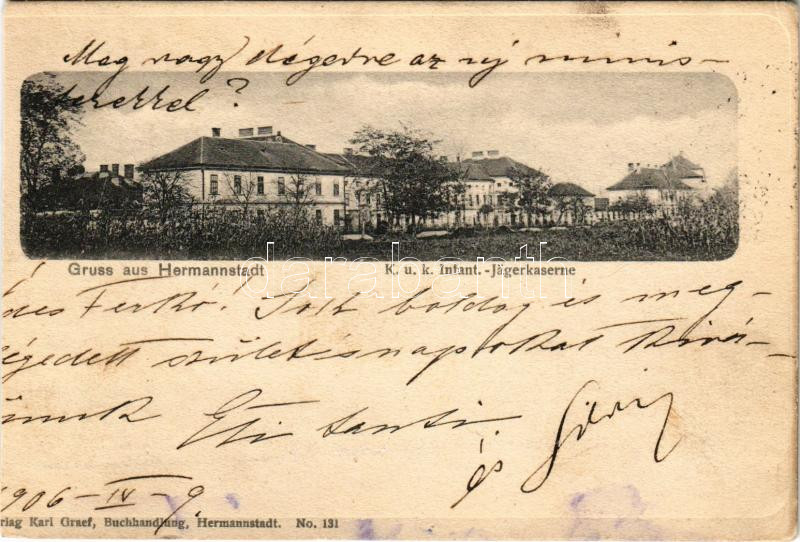 Meg vagy elégedve az új minis-
terekkel?
Gruss aus Hermannstadt
K. u. k. Infant.-Jägerkaserne
darabanth
des Ferkó! Sok boldog és meg-
égedett születésnapokat kivá-
nunk Eti tanti
és
1906-IV-9.
rlag Karl Graef, Buchhandlung, Hermannstadt. No. 131